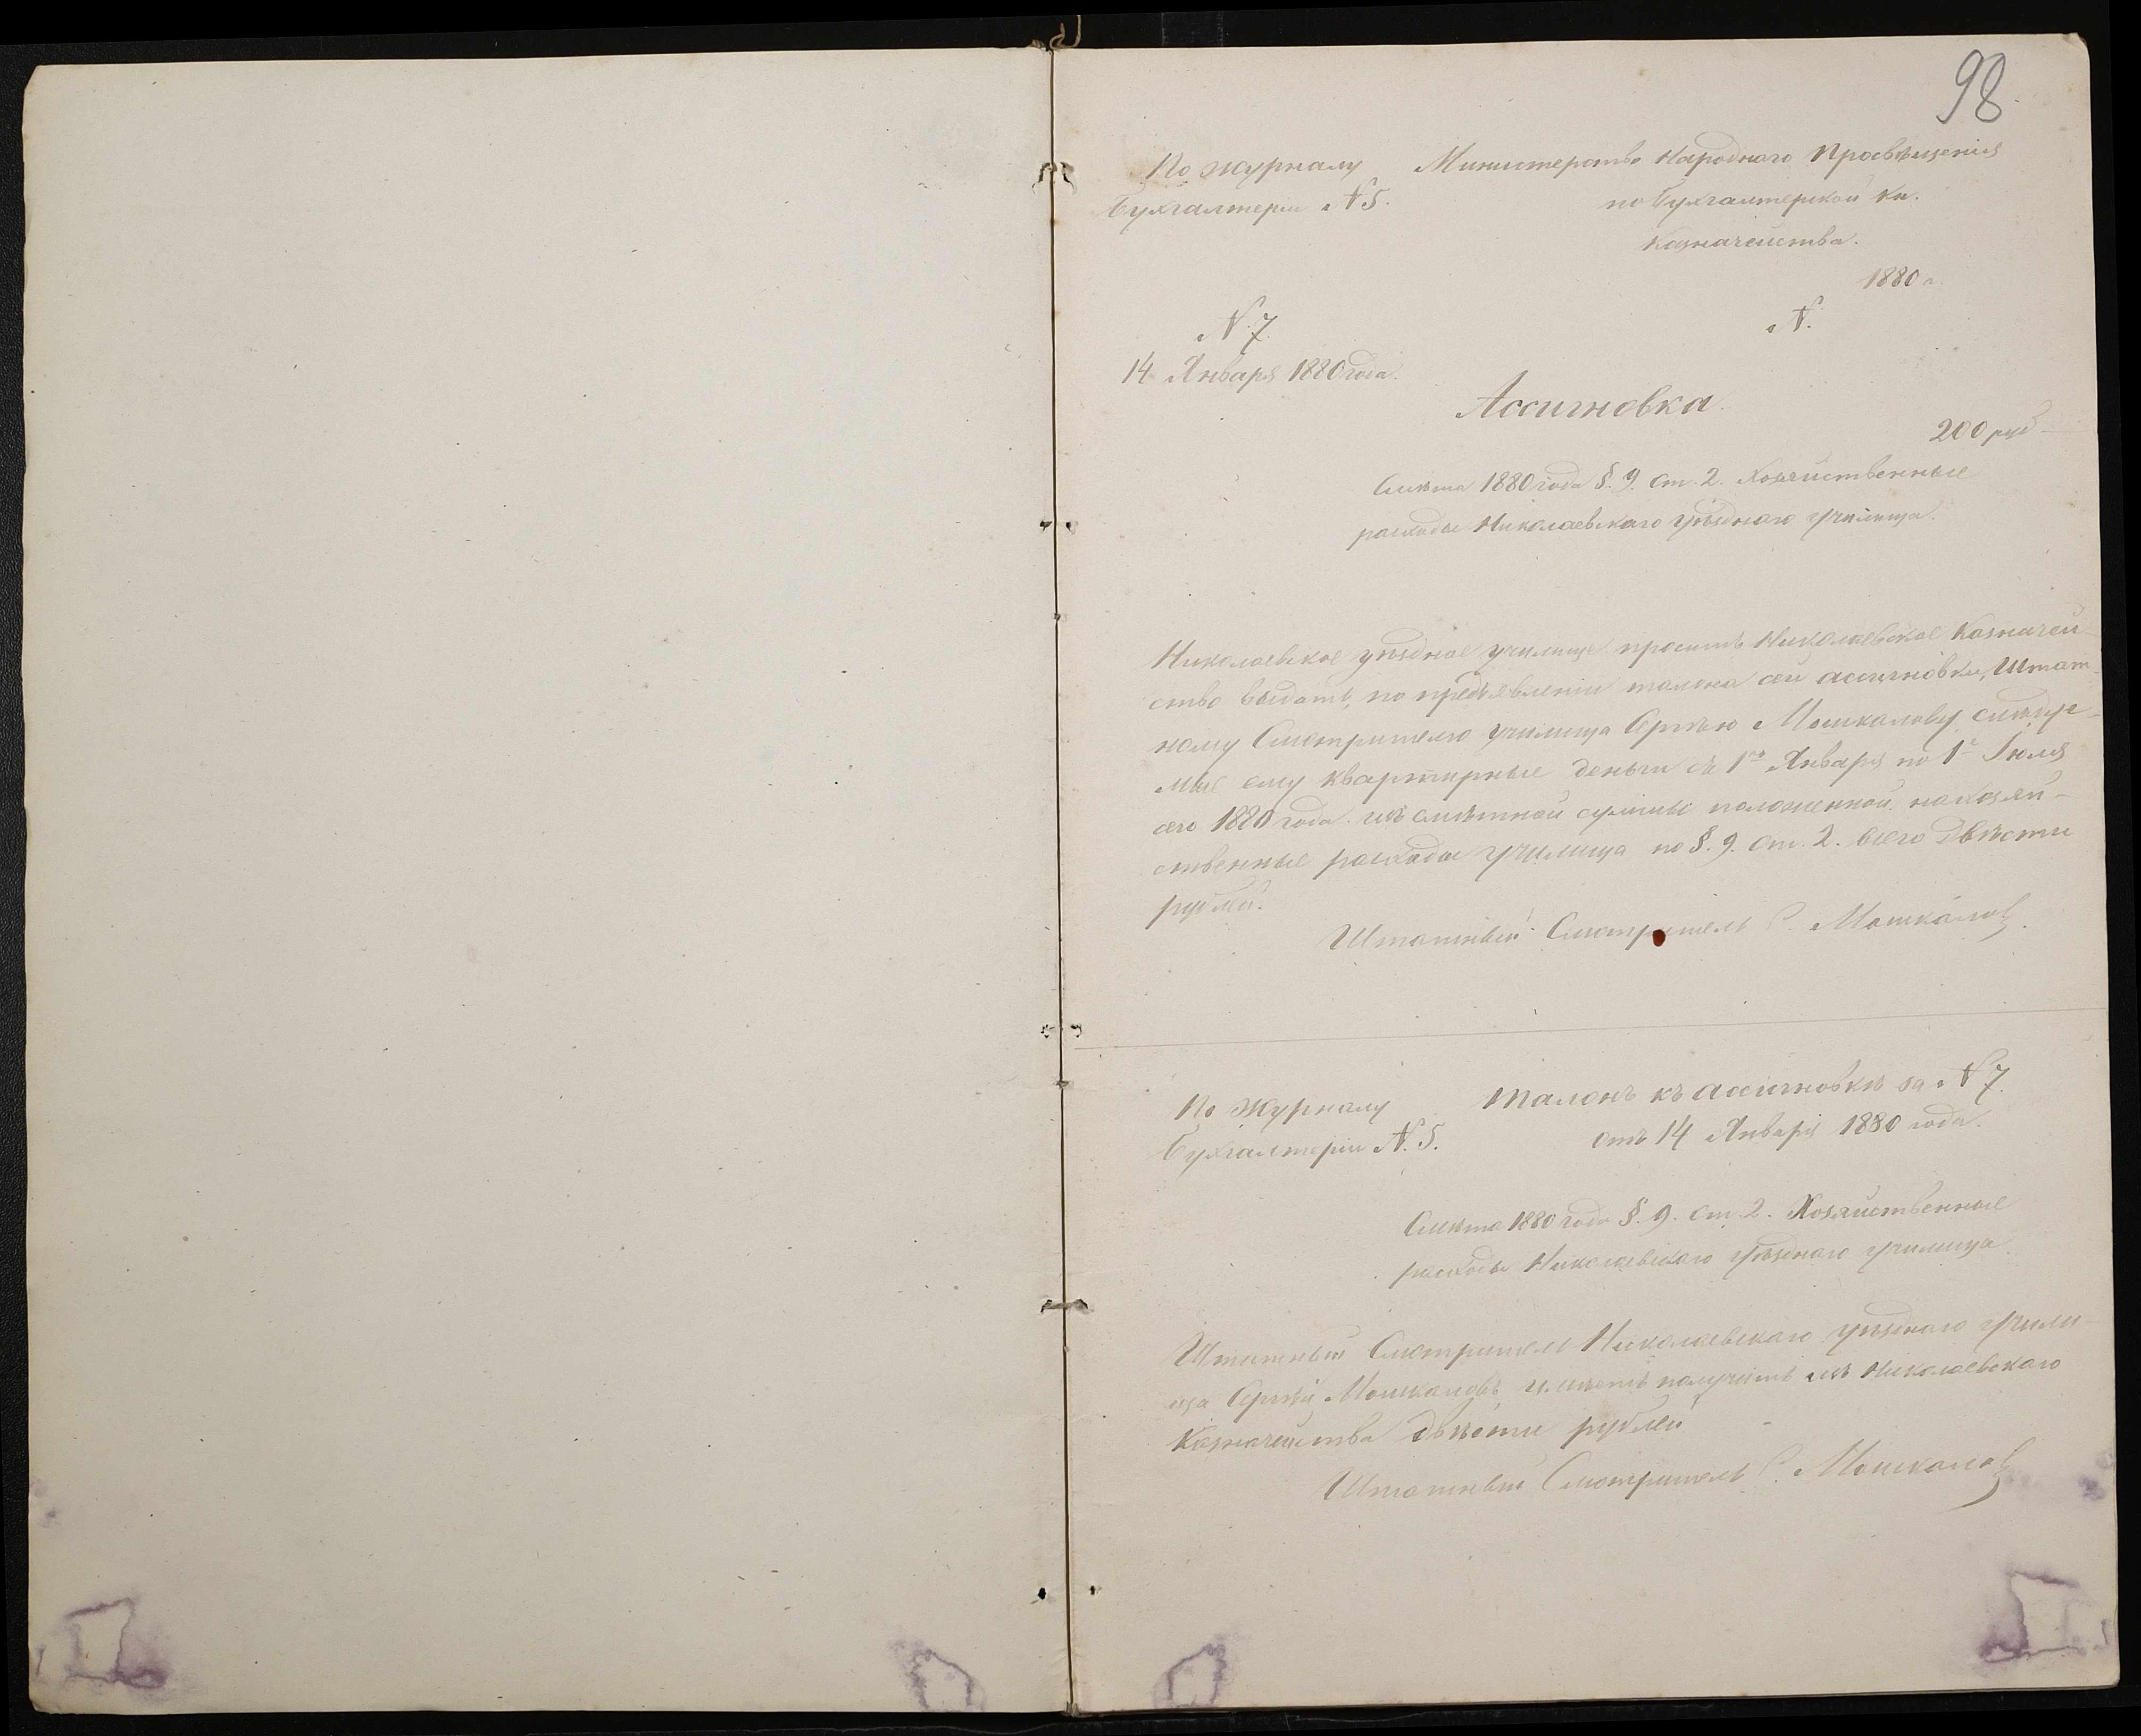 98
По журналу
Бухгалтеріи N 5.
Министерство Народнаго Просвѣщенія
по Бухгалтерской кн.
Казначейства.
1880 г.
N 7
N.
14 Января 1880 года.
Ассигновка.
200 руб
Смѣта 1880 года §. 9. ст. 2. Хозяйственные
расходы Николаевскаго уѣзднаго училища.
Николаевское уѣздное училище проситъ Николаевское Казначей-
ство выдать, по предъявленіи талона сей ассигновки, Штат-
ному Смотрителю училища Сергѣю Мошкалову слѣдуе-
мые ему квартирные деньги съ 1го Января по 1е Іюля
сего 1880 года изъ смѣтной суммы положенной на хозяй-
ственные расходы училища по §. 9. ст. 2. всего двѣсти
рублей.
Штатный Смотритель С. Мошкалов.
По журналу
Бухгалтеріи N. 5.
Талонъ къ ассигновкѣ за N 7.
отъ 14 Января 1880 года.
Смѣта 1880 года §. 9. ст. 2. Хозяйственные
расходы Николаевскаго уѣзднаго училища.
Штатный Смотритель Николаевскаго уѣзднаго учили-
ща Сергѣй Мошкаловъ имѣетъ получить изъ Николаевскаго
Казначейства двѣсти рублей
Штатный Смотритель С. Мошкалов